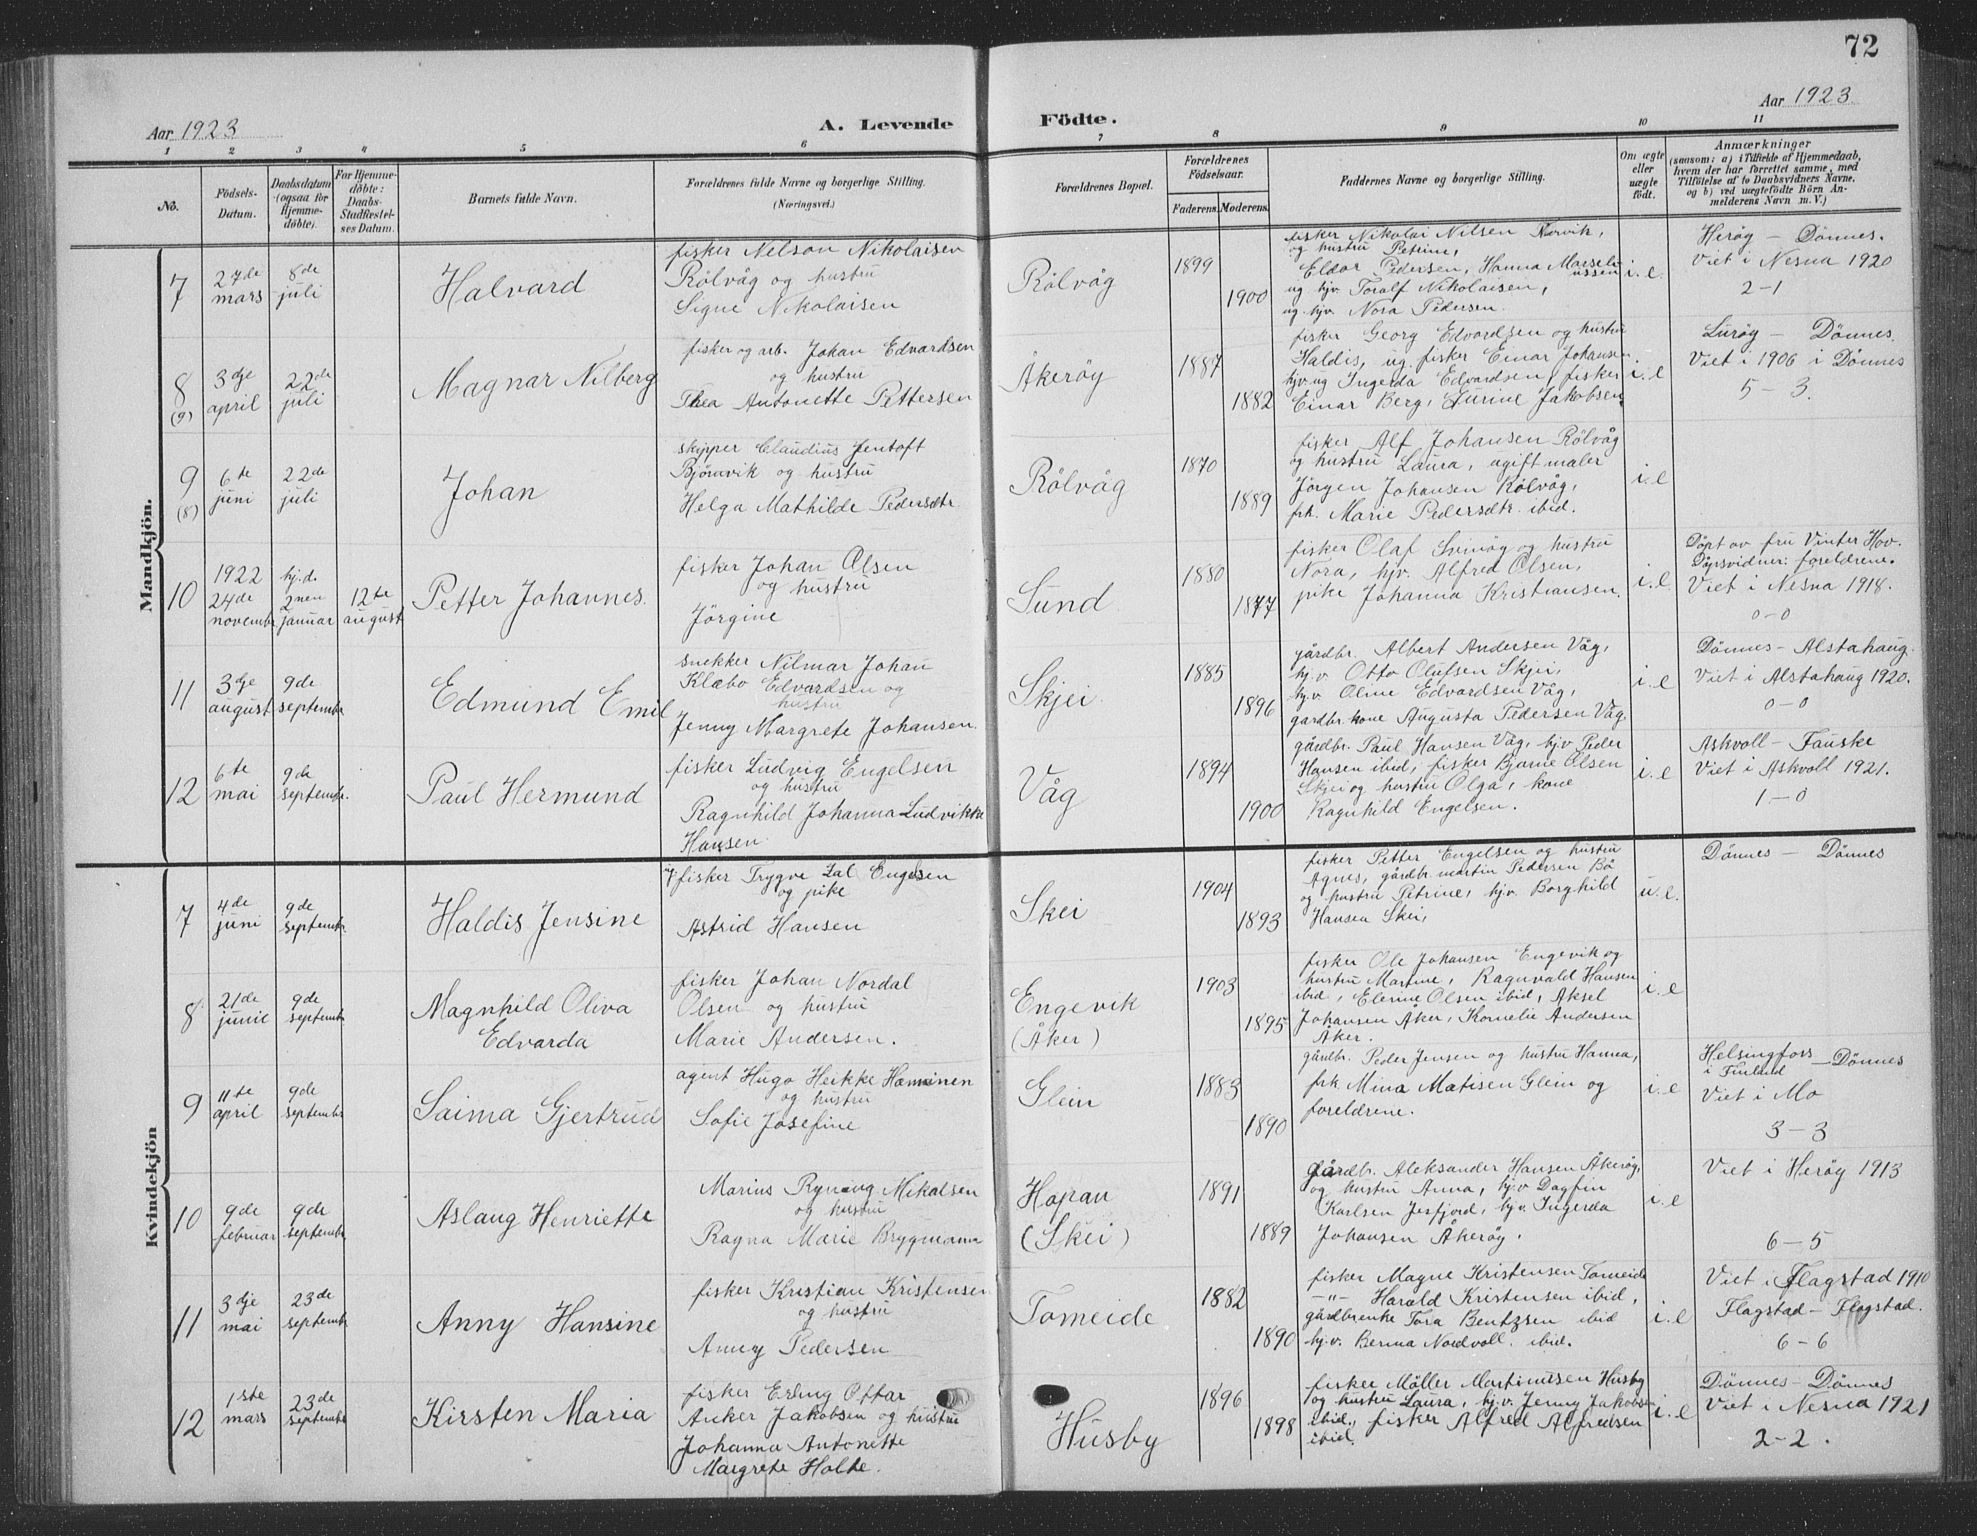 72
Aar 1923
A. Levende Födte.
Aar 1923
1 2 3 4 5 6 7 8 9 10 11
No.
Födsels-
Datum.
Daabsdatum
(ogsaa for
Hjemme-
döbte).
For Hjemme-
döbte:
Daabs-
Stadfæstel-
ses Datum.
Barnets fulde Navn.
Forældrenes fulde Navne og borgerlige Stilling.
(Næringsvei.)
Forældrenes Bopæl.
Forældrenes
Födselsaar.
Faderens. Moderens.
Faddernes Navne og borgerlige Stilling.
Om ægte
eller
uægte
födt.
Anmærkninger
(saasom: a) i Tilfælde af Hjemmedaab,
hvem der har forrettet samme, med
Tilföielse af to Daabsvidners Navne.
og b) ved uægtefödte Börn An-
melderens Navn m. V.)
Mandkjön.
7
27de
mars
8de
juli
Halvard
fisker Nelson Nikolaisen
Rölvåg og hustru
Signe Nikolaisen
Rölvåg
1899
1900
fisker Nikolai Nilsen Nervik,
og hustru Petrine,
Eldar Pedersen, Hanna Marseli-
ussen
ug hjv. Toralf Nikolaisen,
ug. hjv. Nora Pedersen.
i.e.
Heröy – Dönnes.
Viet i Nesna 1920
2–1
8
(9)
3dje
april
22de
juli
Magnar Nilberg
fisker og arb. Johan Edvardsen
og hustru
Thea Antonette Pettersen
Åkeröy
1887
1882
fisker Georg Edvardsen og hustru
Haldis, ug. fisker Einar Johansen,
hjv. ug Ingerda Edvardsen, fisker
Einar Berg, Lurine Jakobsen
i.e
Luröy – Dönnes.
Viet i 1906 i Dönnes
5–3.
9
(8)
6te
juni
22de
juli
Johan
skipper Claudius Jentoft
Björnvik og hustru
Helga Mathilde Pedersdtr.
Rölvåg
1870
1889
fisker Alf Johansen Rölvåg
og hustru Laura, ugift maler
Jörgen Johansen Rölvåg,
frk. Marie Pedersdtr. ibid.
i.e
10
1922
24de
novembr
hj.d.
2nen
januar
12te
august
Petter Johannes.
fisker Johan Olsen
og hustru
Jörgine
Sund
1880
1877
fisker Olaf Svinöy og hustru
Nora, hjv. Alfred Olsen,
pike Johanna Kristiansen.
i.e
Döpt av fru Vinter Hov.
Dåpsvidner: foreldrene.
Viet i Nesna 1918.
0–0
11
3dje
august
9de
septembr
Edmund Emil
snekker Nilmar Johan
Klæbo Edvardsen og
hustru
Jenny Margrete Johansen.
Skjei.
1885
1896
gårdbr. Albert Andersen Våg,
hj.v. Otto Olufsen Skjei,
hj.v Oline Edvardsen Våg,
gardbr. kone Augusta Pedersen Våg
i.e
Dönnes – Alstahaug.
Viet i Alstahaug 1920.
0–0
12
6te
mai
9de
septembr.
Paul Hermund
fisker Ludvig Engelsen
og hustru
Ragnhild Johanna Ludvikke
Hansen.
Våg
1894
1900
gårdbr. Paul Hansen Våg, hj.v Peder
Hansen ibid, fisker Bjarne Olsen
Skjei og hustru Olga, kone
Ragnhild Engelsen.
i.e
Askvoll – Fauske
Viet i Askvoll 1921.
1–0
Kvindekjön
7
4de
juni
9de
septembr.
Haldis Jensine
fisker Trygve Dal Engelsen
og pike
Astrid Hansen
Skei
1904
1893
fisker Petter Engelsen og hustru
Agnes, gårdbr. martin Pedersen Bö
og hustru Petrine, hj.v. Borghild
Hansen Skei,
u.e.
Dönnes – Dönnes
8
21de
junil
9de
septembr
Magnhild Oliva
Edvarda
fisker Johan Nordal
Olsen og hustru
Marie Andersen.
Engevik
(Åker)
1903
1895
fisker Ole Johansen Engevik og
hustru Martine, Ragnvald Hansen
ibid, Elerine Olsen ibid, Aksel
Johansen Åker, Kornelie Andersen
Åker.
i.e
9
11te
april
9de
septembr
Saima Gjertrud
agent Hugo Heikke Hanninen
og hustru
Sofie Josefine
Glein
1883
1890
gårdbr. Peder Jensen og hustru Hanna,
frk. Mina Matisen Glein og
foreldrene.
i.e
Helsingfors – Dönnes
i Finland
Viet i Mo
3–3
10
9de
februar
9de
septembr
Aslaug Henriette
Marius Ryneng Nikolsen
og hustru
Ragna Marie Brygmann
Hopan
(Skei)
1891
1889
gårdbr. Aleksander Hansen Åkeröy,
og hustru Anna, hj.v Dagfin
Karlsen Jesfjord, hj.v. Ingerda
Johansen Åkeröy.
i.e
Viet i Heröy 1913
6–5
11
3dje
mai
23de
septembr
Anny Hansine
fisker Kristian Kristensen
og hustru
Anny Pedersen
Tomeide
1882
1890
fisker Magne Kristensen Tomeide
–"– Harald Kristensen ibid,
gårdbrenke Tora Bentzsen ibid
hj.v. Berma Nordvoll. ibid.
i.e
Viet i Flagstad 1910
Flagstad – Flagstad.
6–6
12
1ste
mars
23de
septembr
Kirsten Maria
fisker Erling Ottar
Anker Jakobsen og hustru
Johanna Antonette
Margrete Holte.
Husby
1896
1898
fisker Möller Martinusen Husby
og hustru Laura, hj.v. Jenny Jakobsen
ibid., fisker Alfred Alfredsen
ibid.
i.e
Dönnes – Dönnes
Viet i Nesna 1921
2–2.